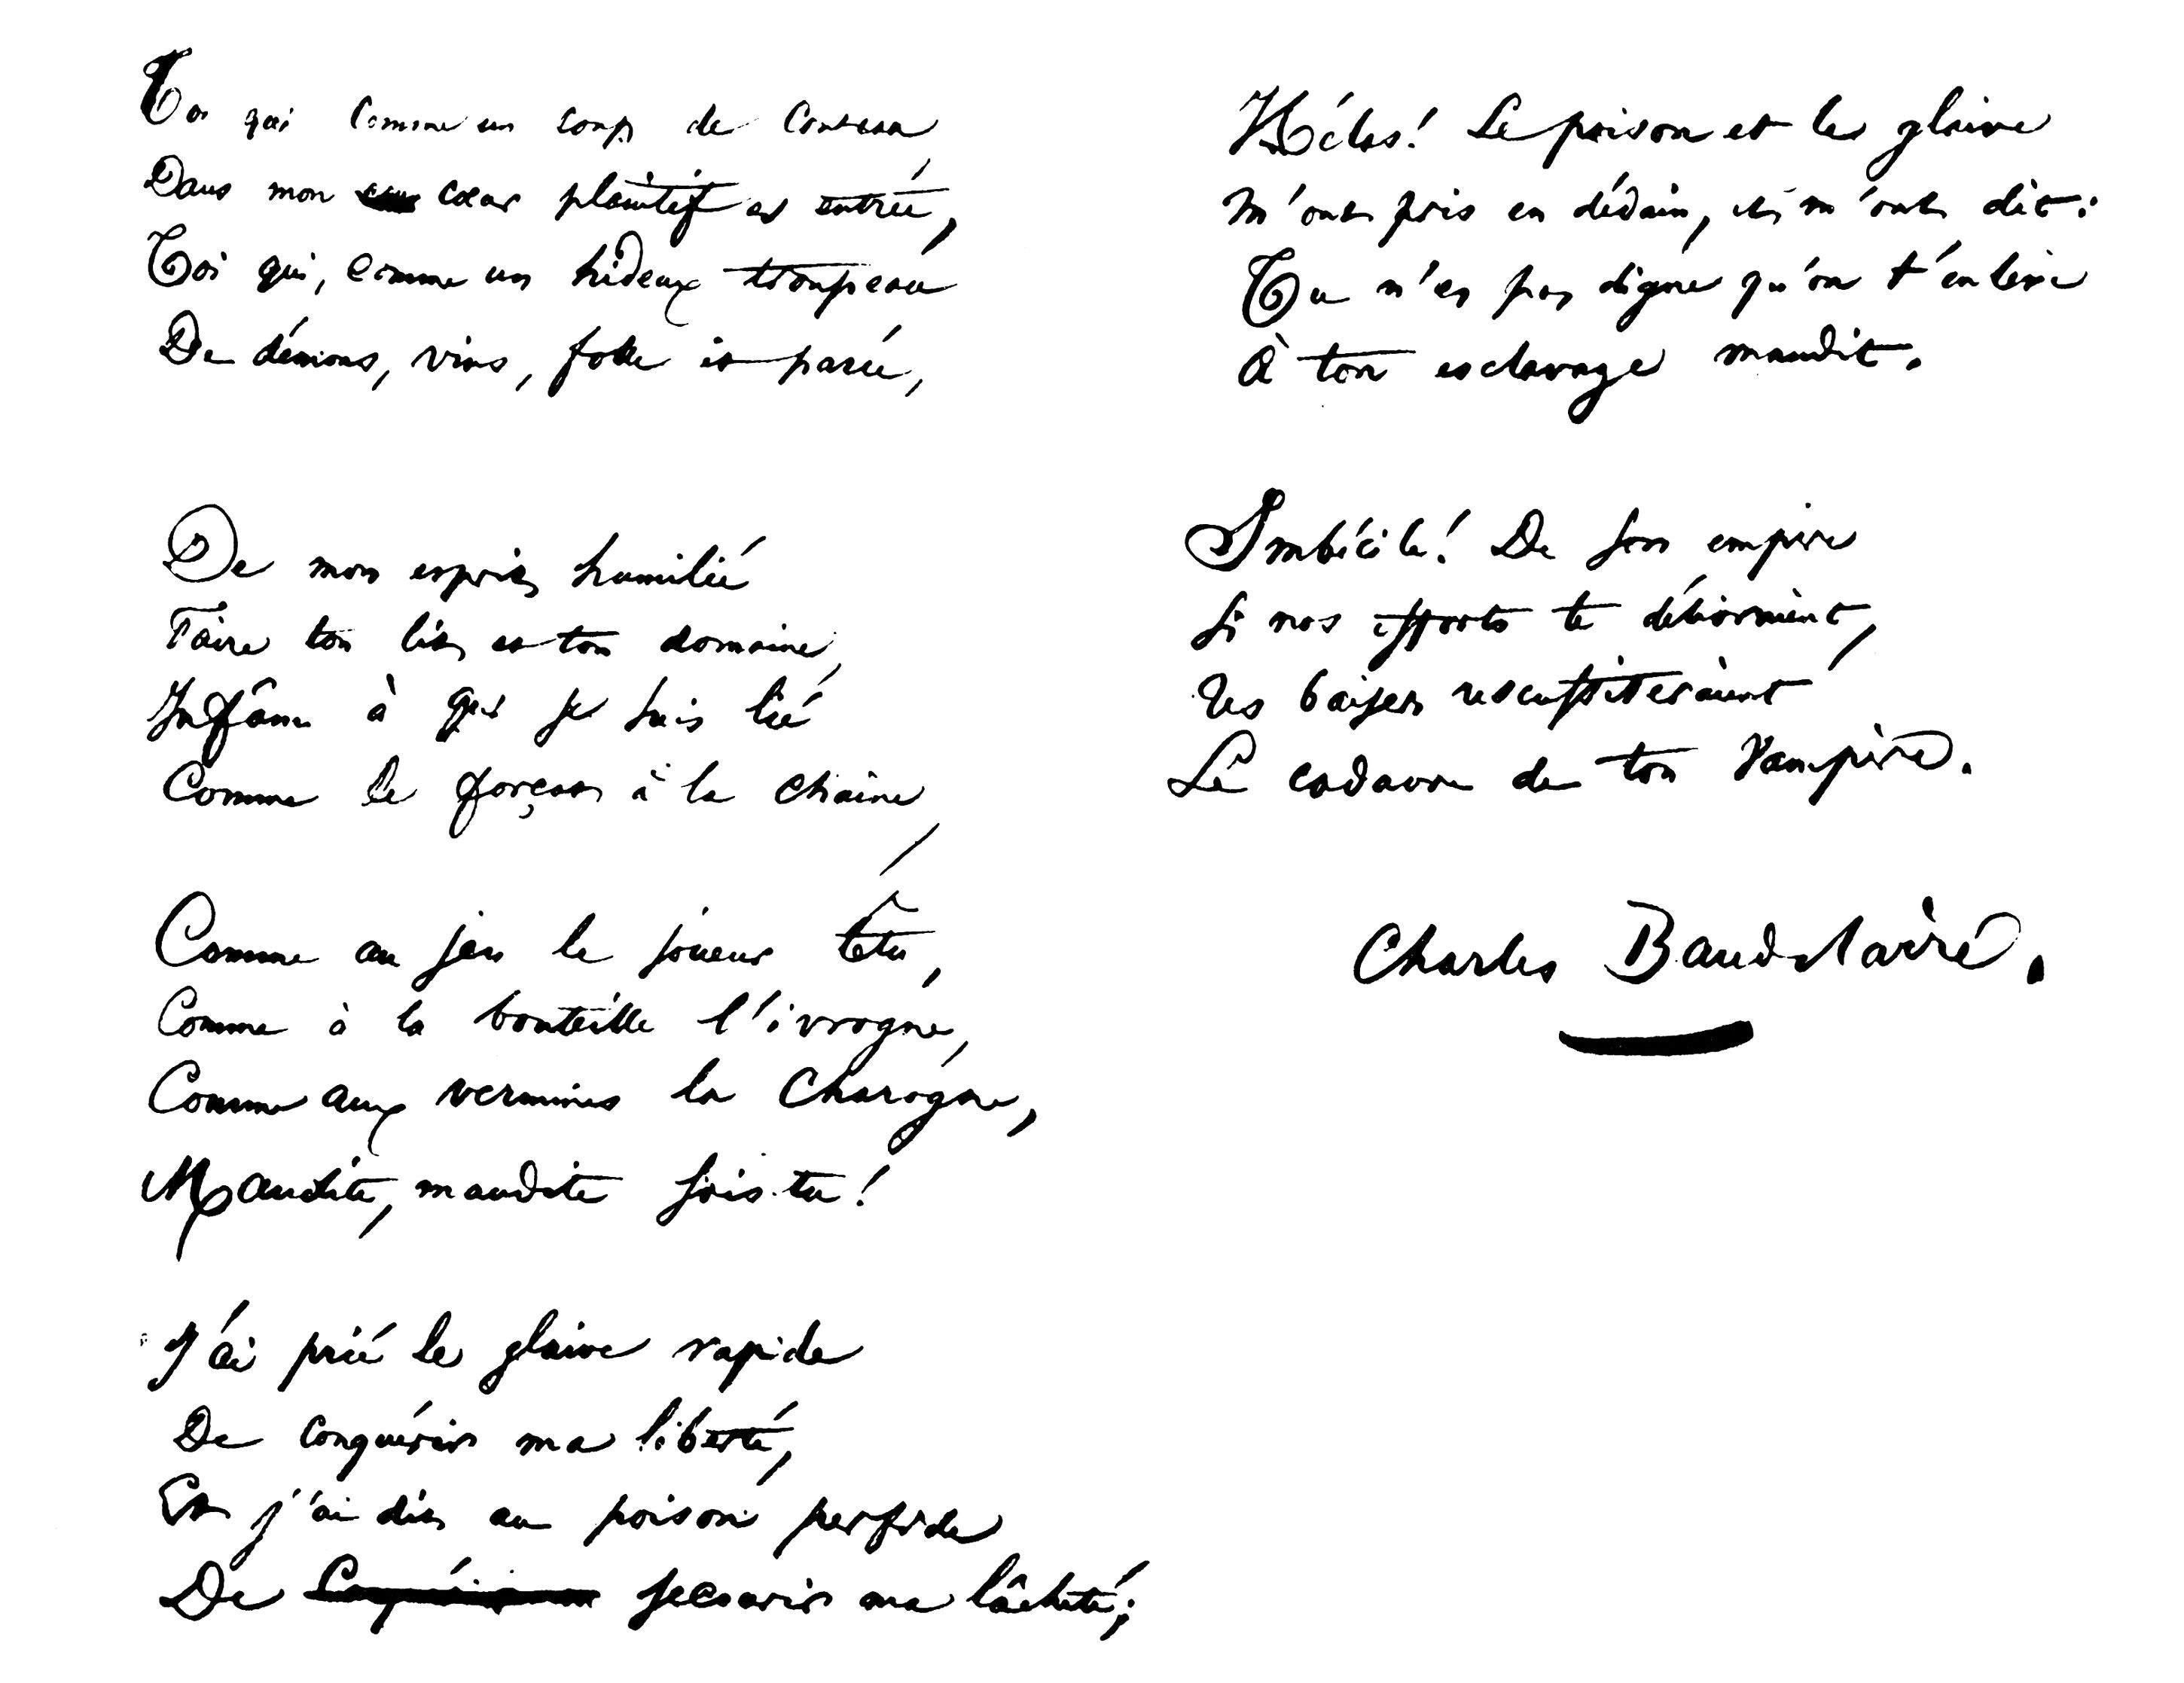 Toi qui comme un coup de couteau
Dans mon cœur plaintif es entrée,
Toi qui, comme un hideux troupeau
De démons, vins, folle et parée,
De mon esprit humilié
Faire ton lit et ton domaine,
Infâme à qui je suis lié
Comme le forçat à la chaine,
Comme au jeu le joueur têtu,
Comme à la bouteille l'ivrogne,
Comme aux vermines la charogne,
Maudite, maudite sois-tu!
J'ai prié le glaive rapide
De conquérir ma liberté,
Et j'ai dit au poison perfide
De secourir ma lâcheté;
Hélas! Le poison et le glaive
M'ont pris en dédain, et m'ont dit:
Tu n'es pas digne qu'on t'enlève
À ton esclavage maudit.
Imbécile! De son empire
Si nos efforts te délivraient,
Tes baisers ressusciteraient
Le cadavre de ton Vampire.
Charles Baudelaire.